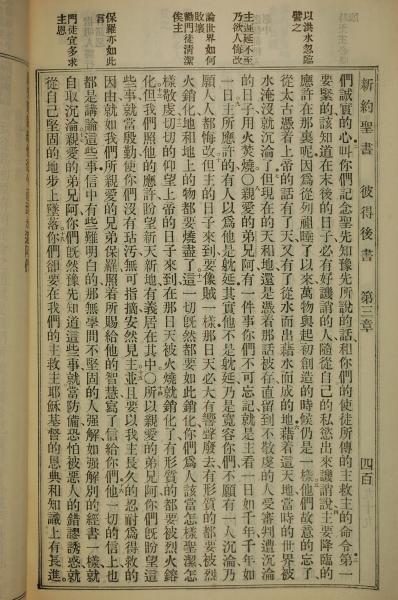 以洪水忽臨
譬之
主遲延不至
乃欲人悔改
論世界如何
敗壞
勸門徒清潔
俟主
保羅亦如此
言
門徒宜多求
主恩
新約聖書 彼得後書 第三章 四百
們誠實的心叫你們記念聖先知豫先所說的話和你們的使徒所傳的主救主的命令第一
要緊的該知道在末後的日子必有好譏誚的人隨從自己的私慾出來譏誚說主要降臨的
應許在那裏呢因爲從列祖睡了以來萬物與起初創造的時候仍是一樣他們故意的忘了
從太古憑着上帝的話有了天又有了從水而出藉水而成的地藉着這天地當時的世界被
水淹沒就沉淪了但現在的天和地還是憑着那話被存直留到不敬虔的人受審判遭沉淪
的日子用火焚燒〇親愛的弟兄阿有一件事你們不可忘記就是主看一日如千年千年如
一日主所應許的有人以爲他是躭延其實他不是躭延乃是寬容你們不願有一人沉淪乃
願人人都悔改但主的日子來到要像賊一樣那日天必大有響聲廢去有形質的都要被烈
火銷化地和地上的物都要燒盡了這一切旣然都要如此銷化你們爲人該當怎樣聖潔怎
樣敬虔切切的仰望上帝的日子來到在那日天被火燒就銷化了有形質的都要被烈火鎔
化但我們照他的應許盼望新天新地有義居在其中〇所以親愛的弟兄阿你們旣盼望這
樣事就當殷勤使你們沒有玷污無可指摘安然見主並且要以我主長久的忍耐爲得救的
因由就如我們所親愛的兄弟保羅照着所賜給他的智慧寫了信給你們他一切的信上也
都是講論這些事信中有些難明白的那無學問不堅固的人強解如強解別的經書一樣就
自取沉淪親愛的弟兄阿你們旣然豫先知道這些事就當防備恐怕被惡人的錯謬誘惑就
從自己堅固的地步上墜落你們卻要在我們的主救主耶穌基督的恩典和知識上有長進